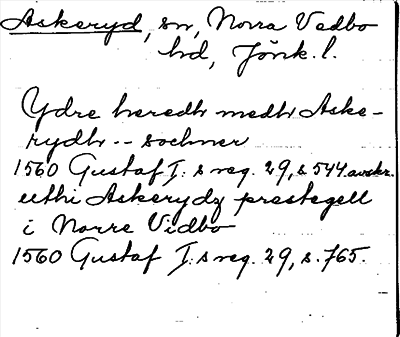 Askeryd, sn, Norra Vedbo
hd, Jönk. l.
Ydre heredh medh Aske-
rydh -- sochner
1560 Gustaf I:s reg. 29, s 544. avskr.
uthi Askerydz prestegell
i Norre Vidbo
1560 Gustaf I:s reg. 29, s. 765.